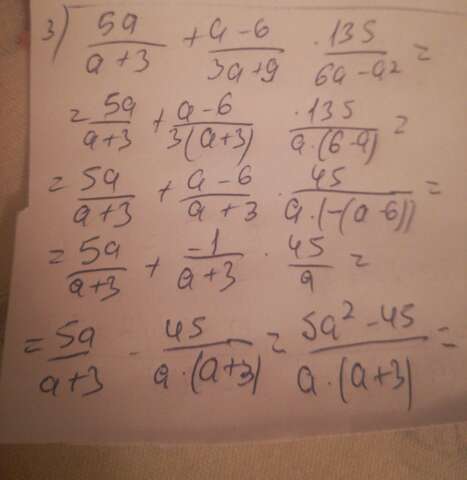 3) 5a/(a+3) + (a-6)/(3a+9) · 135/(6a-a²) =
= 5a/(a+3) + (a-6)/(3(a+3)) · 135/(a·(6-a)) =
= 5a/(a+3) + (a-6)/(a+3) · 45/(a·(-(a-6))) =
= 5a/(a+3) + -1/(a+3) · 45/a =
= 5a/(a+3) - 45/(a·(a+3)) = (5a²-45)/(a·(a+3)) =